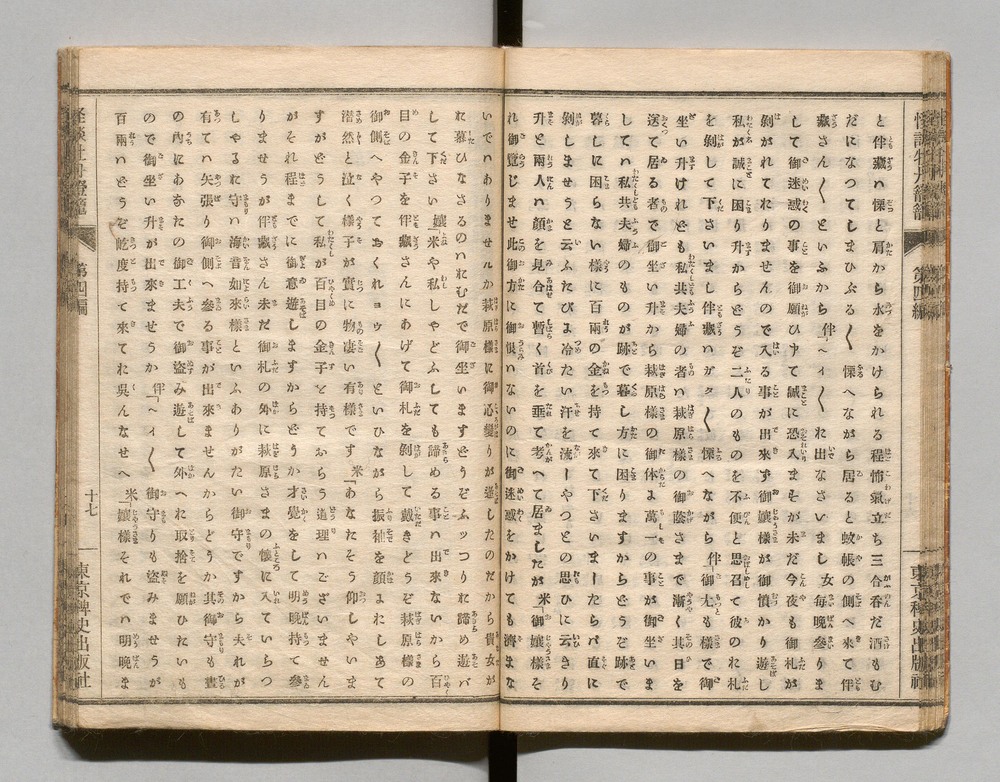 と伴藏ハ慄と肩から水をかけられる程怖氣立ち三合呑だ酒もむ
だになつてしまひぶる〱慄へながら居ると蚊帳の側へ來て伴
藏さん〱といふから 伴「へイ〱お出なさいまし 女「毎晩參りま
して御迷惑の事を御願ひ申て誠に恐入ますが未だ今夜も御札が
剝がれておりませんので入る事が出來ず御孃樣が御憤かり遊し
私が誠に困り升からどうぞ二人のものを不便と思召て彼のお札
を剝して下さいまし伴藏ハガタ〱慄へながら 伴「御尤も樣で御
坐い升けれども私共夫婦の者ハ萩原樣の御蔭さまで漸く其日を
送て居る者で御坐い升から萩原樣の御体よ萬一の事が御坐いま
してハ私共夫婦のものが跡で暮し方に困りますからどうぞ跡で
暮しに困らない樣に百兩の金を持て來て下さいましたらバ直に
剝しませうと云ふたびよ冷たい汗を流しやつとの思ひに云きり
升と兩人ハ顏を見合て暫く首を垂て考へて居ましたが 米「御孃樣そ
れ御覽じませ此御方に御恨ハないのに御迷惑をかけて濟まな
いでハありませんか萩原樣に御心變りが遊したのだから貴女が
お慕ひなさるのハおむだで御坐いますどうぞふッつりお諦め遊バ
して下さい 孃「米や私しやどふしても諦める事ハ出來ないから百
目の金子を伴藏さんにあげて御札を剝して戴きどうぞ萩原樣の
御側へやつておくれヨウ〱といひながら振袖を顏よおしあて
潜然と泣く樣子が實に物凄い有樣です 米「あなたそう仰しやいま
すがどうして私が百目の金子を持ておらう道理ハございません
がそれ程までに御意遊しますからどうか才覺をして明晩持て參
りませうが伴藏さん未だ御札の外に萩原さまの懷に入ていらつ
しやるお守ハ海音如來樣といふありがたい御守ですから夫れが
有てハ矢張り御側へ參る事が出來ませんからどうか其御守も晝
の內にあなたの御工夫で御盜み遊して外へお取捨を願ひたいも
ので御坐い升が出來ませうか 伴「へイ〱御守りも盜みませうが
百兩ハどうぞ乾度持て來てお呉んなせへ 米「孃樣それでハ明晚ま
第四編
十七
東京稗史出版社
第四編
東京稗史出版社